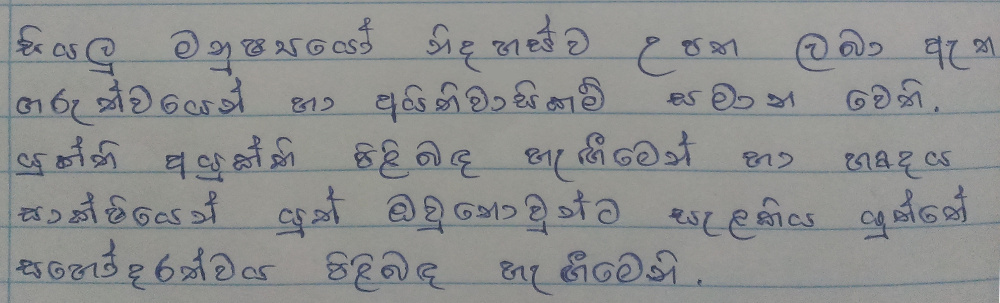 සියලු මනුෂ්‍යයෝ නිදහස්ව උපත ලබා ඇත
ගරුත්වයෙන් හා අයිතිවාසිකම් සමාන වෙති.
යුක්ති අයුක්ති පිළිබඳ හැඟීමෙන් හා හෘදය
සාක්ෂියෙන් යුත් ඔවුනොවුන්ට සැළකිය යුත්තේ
සහෝදරත්වය පිළිබඳ හැඟීමෙනි.